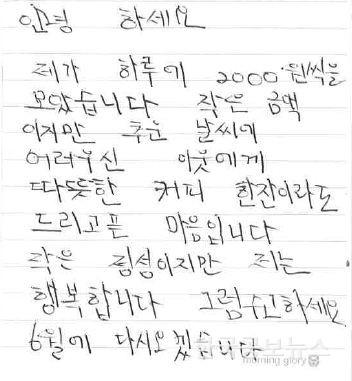 안녕 하세요
제가 하루에 2000원씩을
모았습니다 작은 금액
이지만 추운 날씨에
어려우신 이웃에게
따듯한 커피 한잔이라도
드리고픈 마음입니다
작은 정성이지만 저는
행복합니다 그럼수고하세요
6월에 다시오겠습니다
morning glory